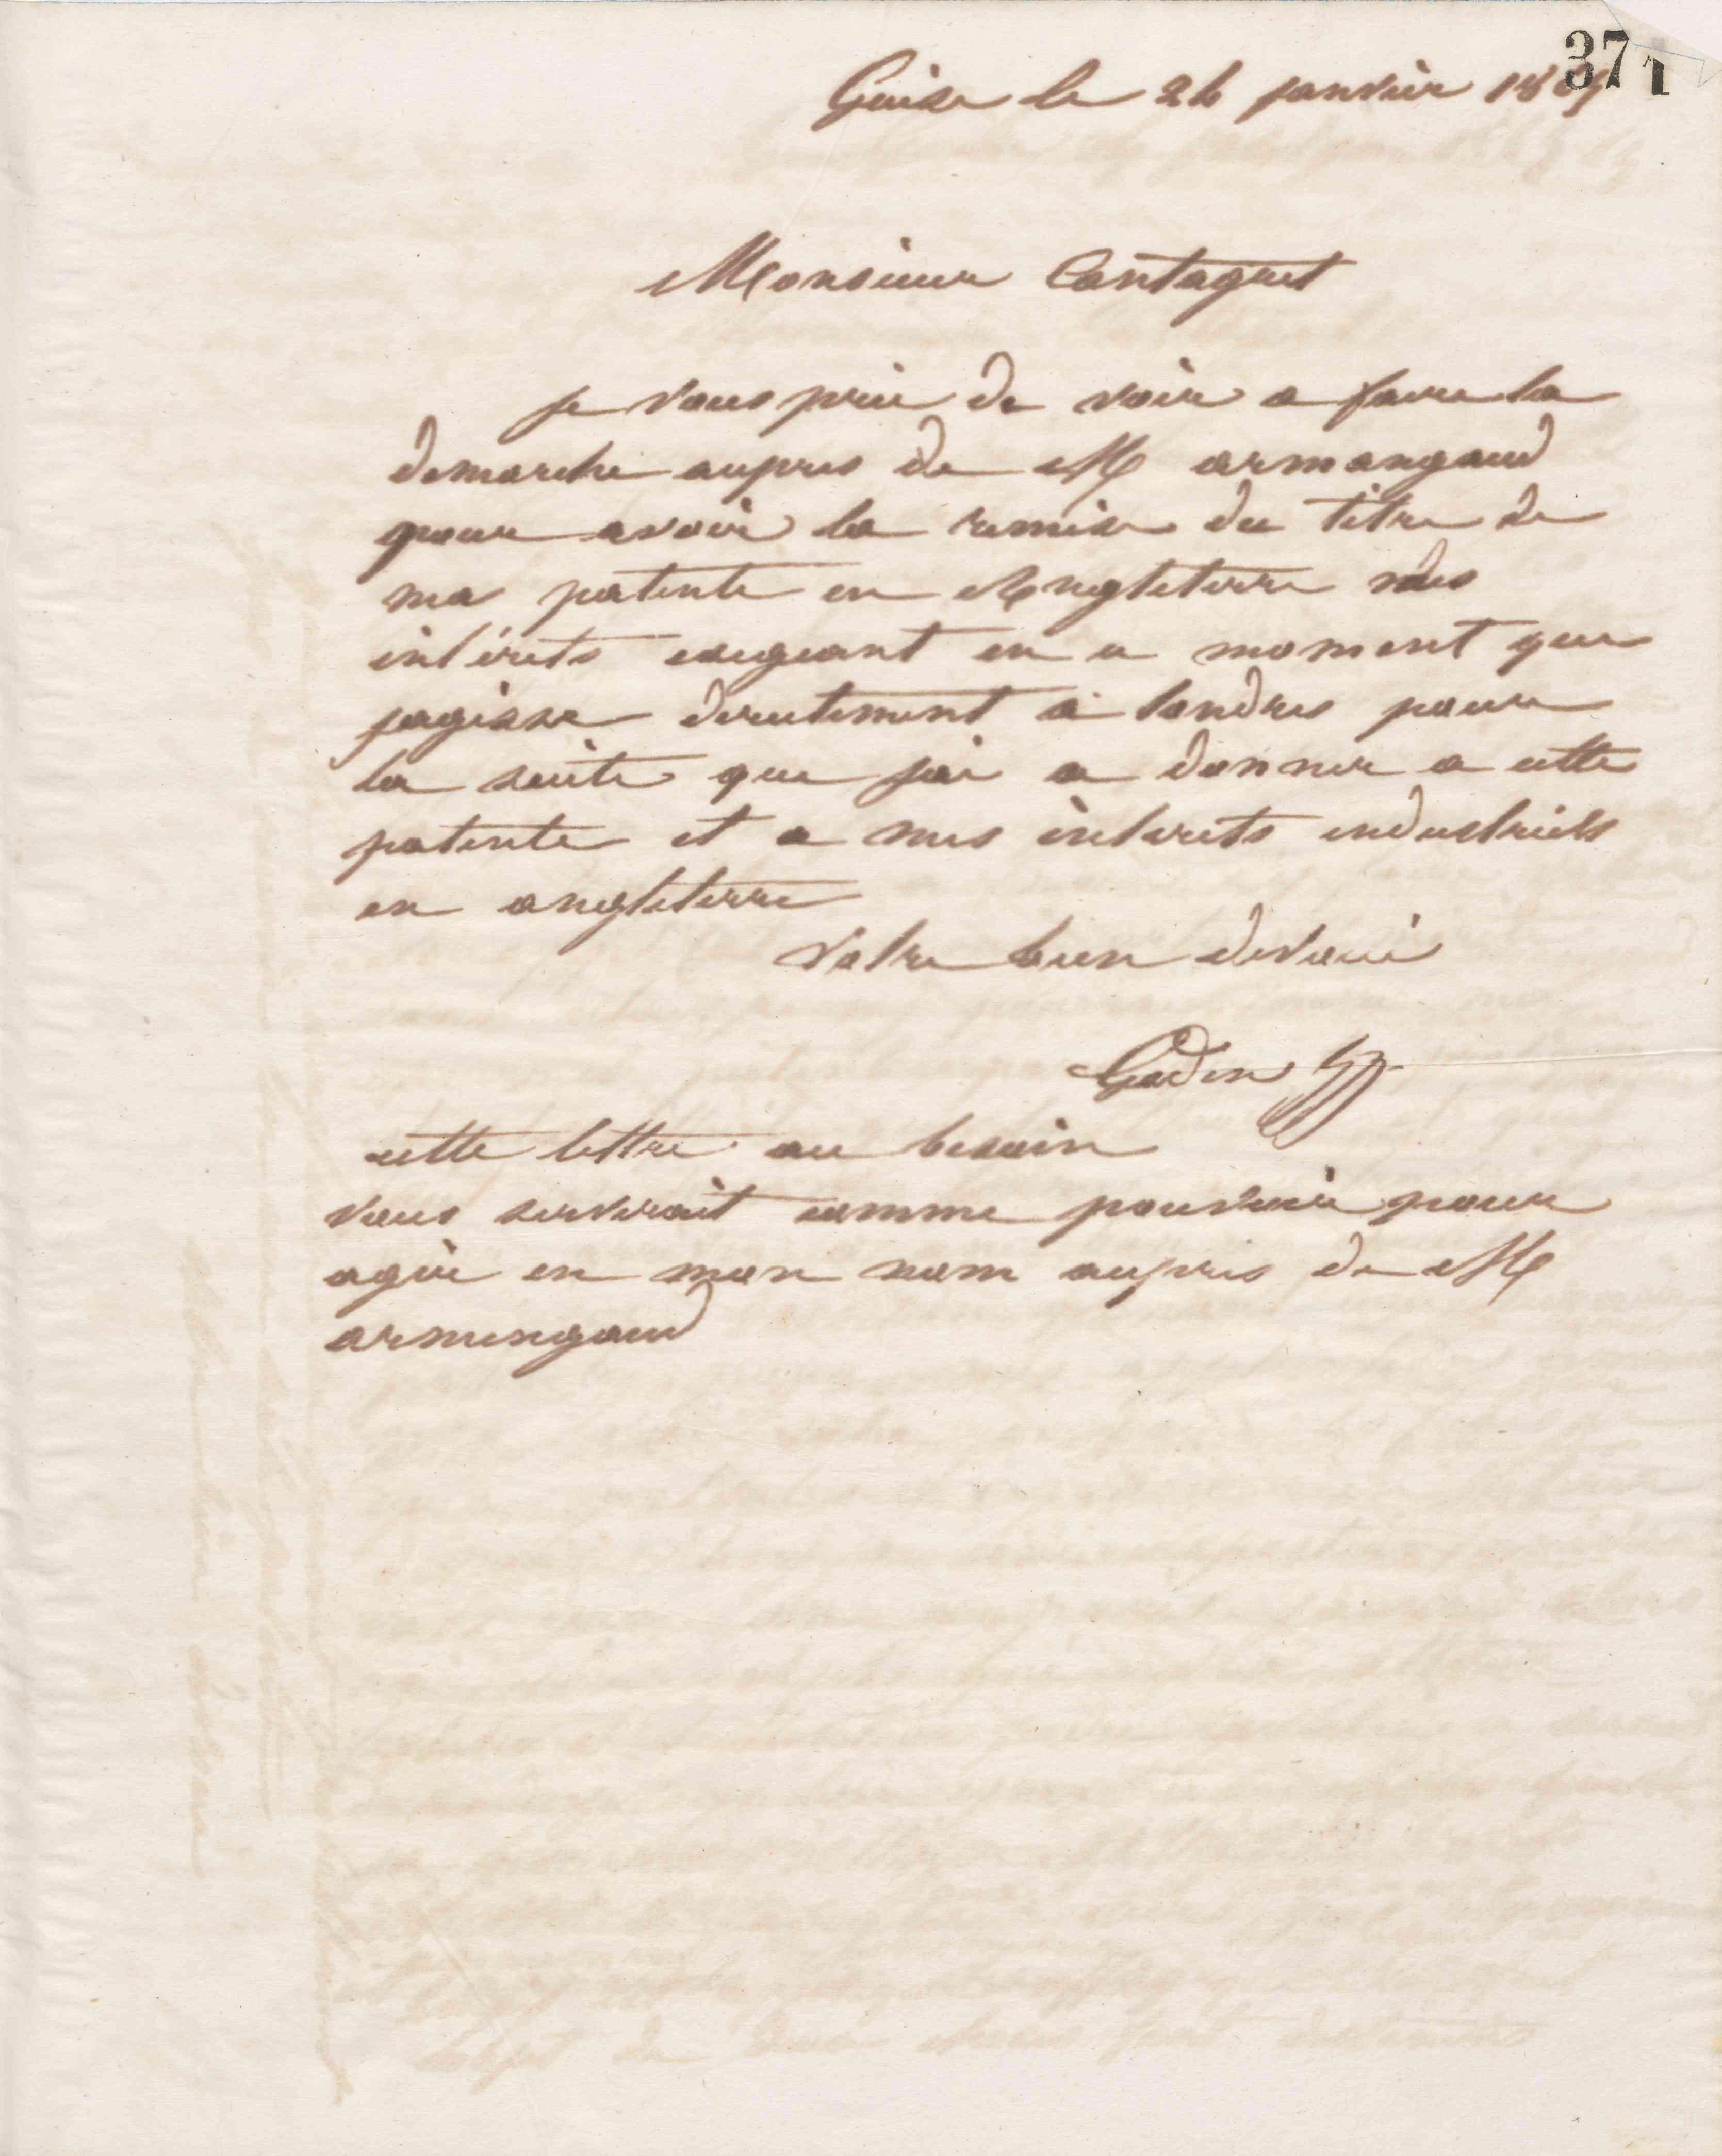 371
Guise le 24 janvier 18
Monsieur Cantagrel
je vous prie de voir a faire la
demarche aupres de M armangaud
pour avoir la remise du titre de
ma patente en Angleterre mes
intérets exigeant en ce moment que
jagisse directement à londres pour
la suite que jai a donner a cette
patente et a mes intérets industriels
en angleterre
Votre bien devoué
Godin
cette lettre au besoin
vous serverait comme pouvoir pour
agir en mon nom aupres de M
armengaud